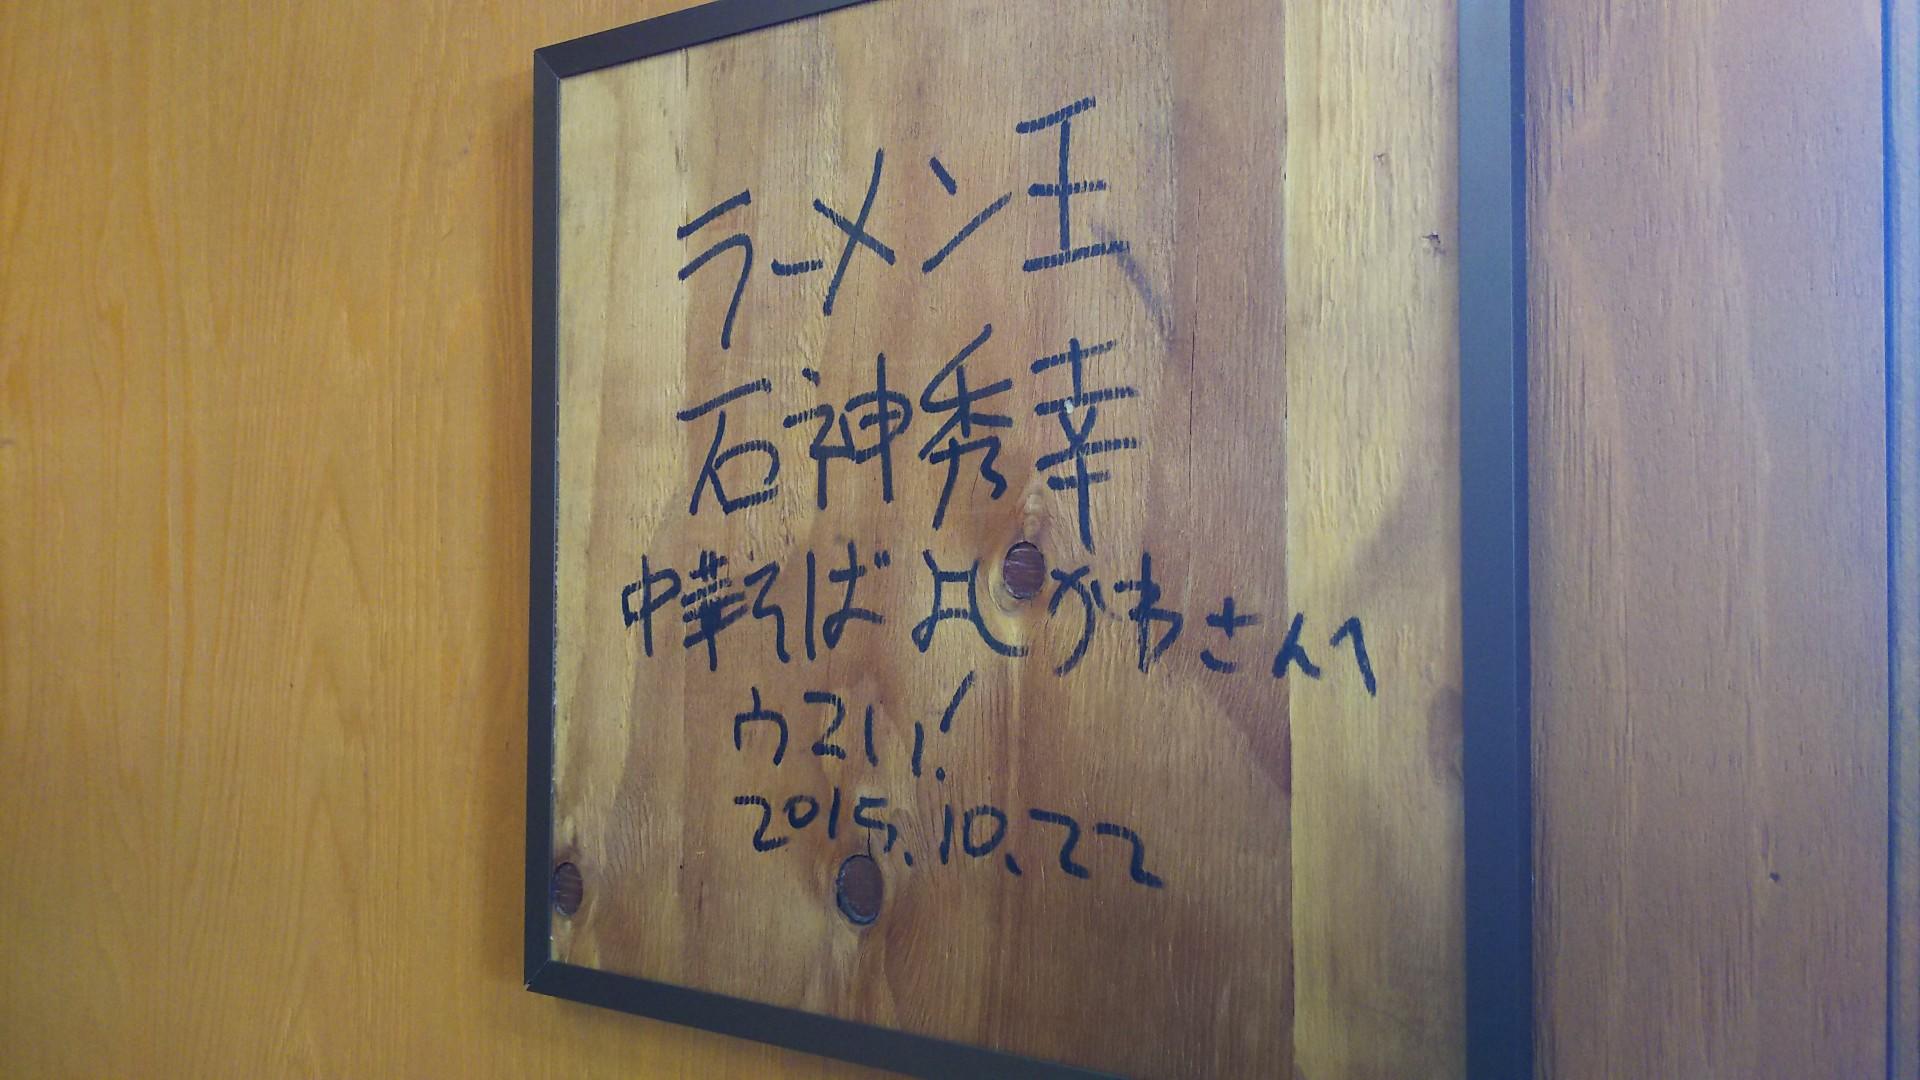 ラーメン王
石神秀幸
中華そば よしかわさんへ
ウマい!
2015.10.22